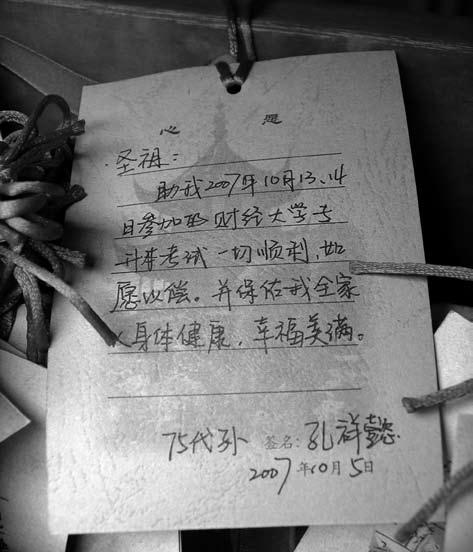 心 愿
圣祖：
助我2007年10月13、14
日参加西财经大学专
升本考试一切顺利，如
愿以偿。并保佑我全家
人身体健康，幸福美满。
75代孙 签名：孔祥懿
2007年10月5日